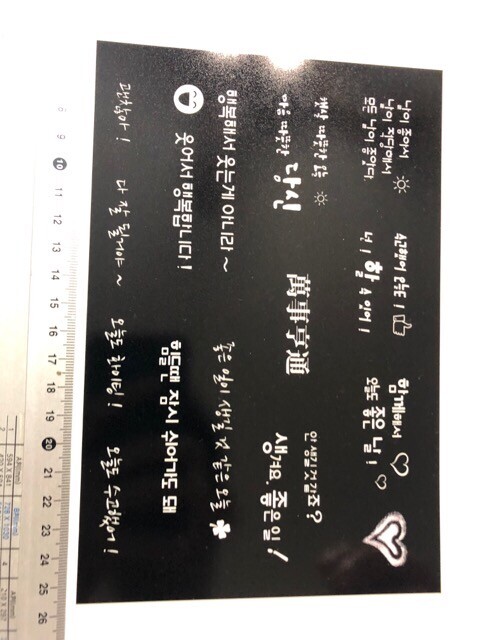 날이 좋아서
날이 적당해서
모든 날이 좋았다
수고했어 오늘도!
너! 할 수 있어!
함께해서
오늘도 좋은 날!
햇살 따뜻한 오늘
마음 따뜻한 당신
萬事亨通
안 생길것 같죠?
생겨요. 좋은 일!
행복해서 웃는게 아니라~
웃어서 행복합니다!
좋은 일이 생길 것 같은 오늘
힘들땐 잠시 쉬어가도 돼
괜찮아! 다 잘 될거야~ 오늘도 화이팅! 오늘도 수고했어!
8 9 10 11 12 13 14 15 16 17 18 19 20 21 22 23 24 25 26